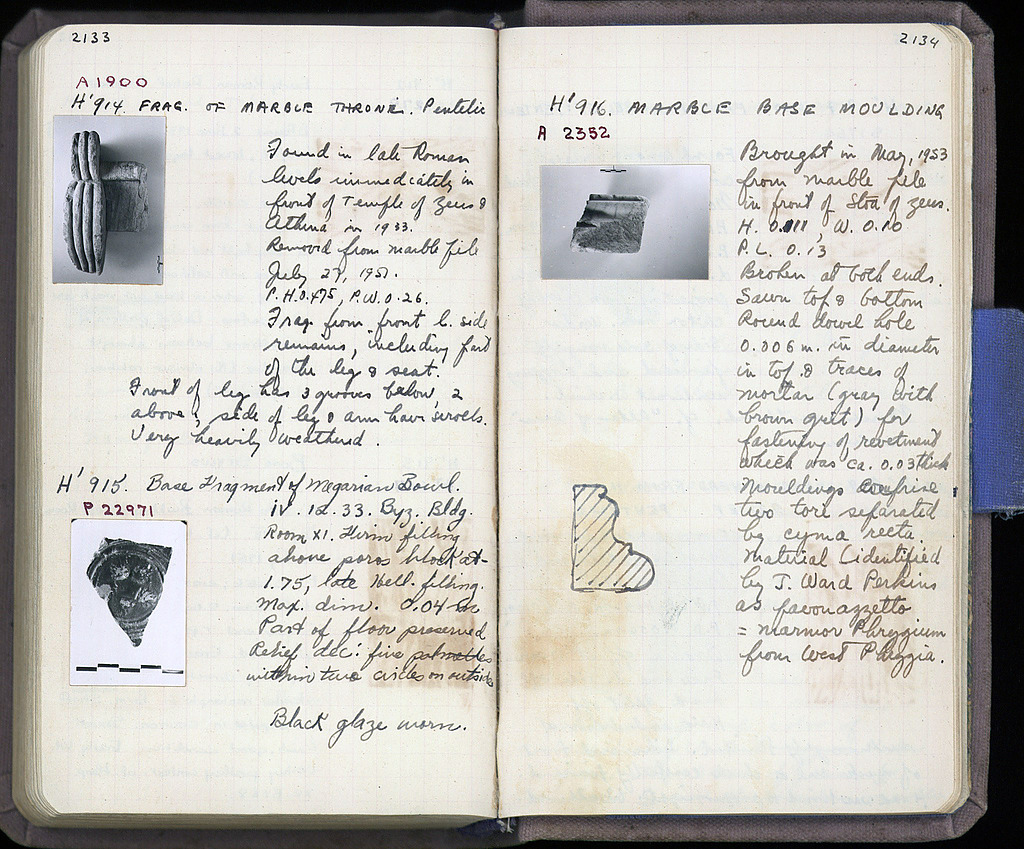 2133
A 1900
H'914 FRAG. OF MARBLE THRONE. Pentelic
Found in late Roman
levels immediately in
front of Temple of Zeus &
Athena in 1933.
Removed from marble pile
July 27, 1951.
P.H. 0.475, P.W. 0.26.
Frag. from front l. side
remains, including part
of the leg & seat.
Front of leg has 3 grooves below, 2
above; side of leg & arm have scrolls.
Very heavily weathered.
H' 915. Base Fragment of Megarian Bowl.
P 22971
IV. 12. 33. Byz. Bldg.
Room XI. Firm filling
above poros block at -
1.75, late Hell. filling.
Max. dim. 0.04 m
Part of floor preserved
Relief dec: five palmettes
within two circles on outside
Black glaze worn.
2134
H'916. MARBLE BASE MOULDING
A 2352
Brought in May, 1953
from marble pile
in front of Stoa of Zeus.
H. 0.111, W. 0.10
P.L. 0.13
Broken at both ends.
Sawn top & bottom
Round dowel hole
0.006 m. in diameter
in top & traces of
mortar (gray with
brown grit) for
fastening of revetment
which was ca. 0.03 thick
Mouldings comprise
two tori separated
by cyma recta.
Material (identified
by J. Ward Perkins
as pavonazzetto
= marmor Phrygium
from West Phrygia.